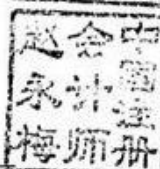 中国注册
会计师
赵永梅